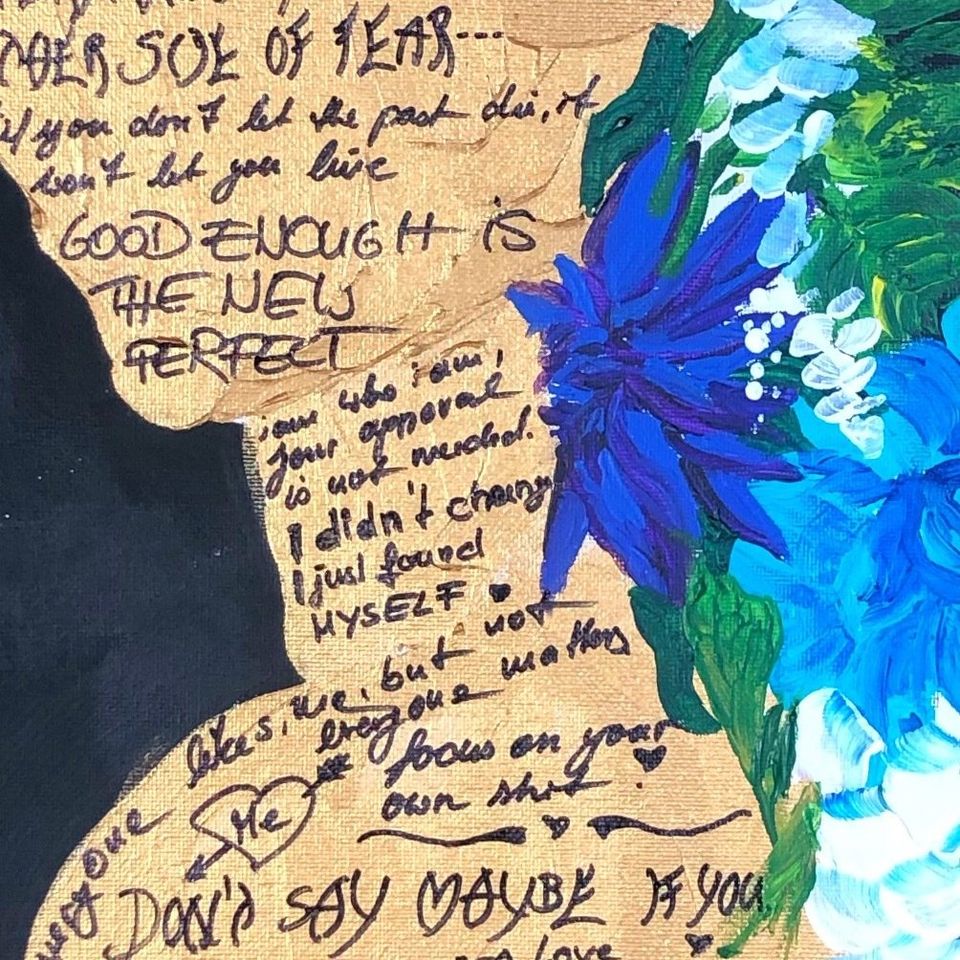 SIDE OF FEAR---
if you don't let the past die, it
won't let you live
GOOD ENOUGH IS
THE NEW
PERFECT
i am who i am,
your approval
is not needed.
I didn't change
I just found
MYSELF ♥
everyone likes me, but not
everyone matters
focus on your
own shit.
Me
DON'T SAY MAYBE IF YOU